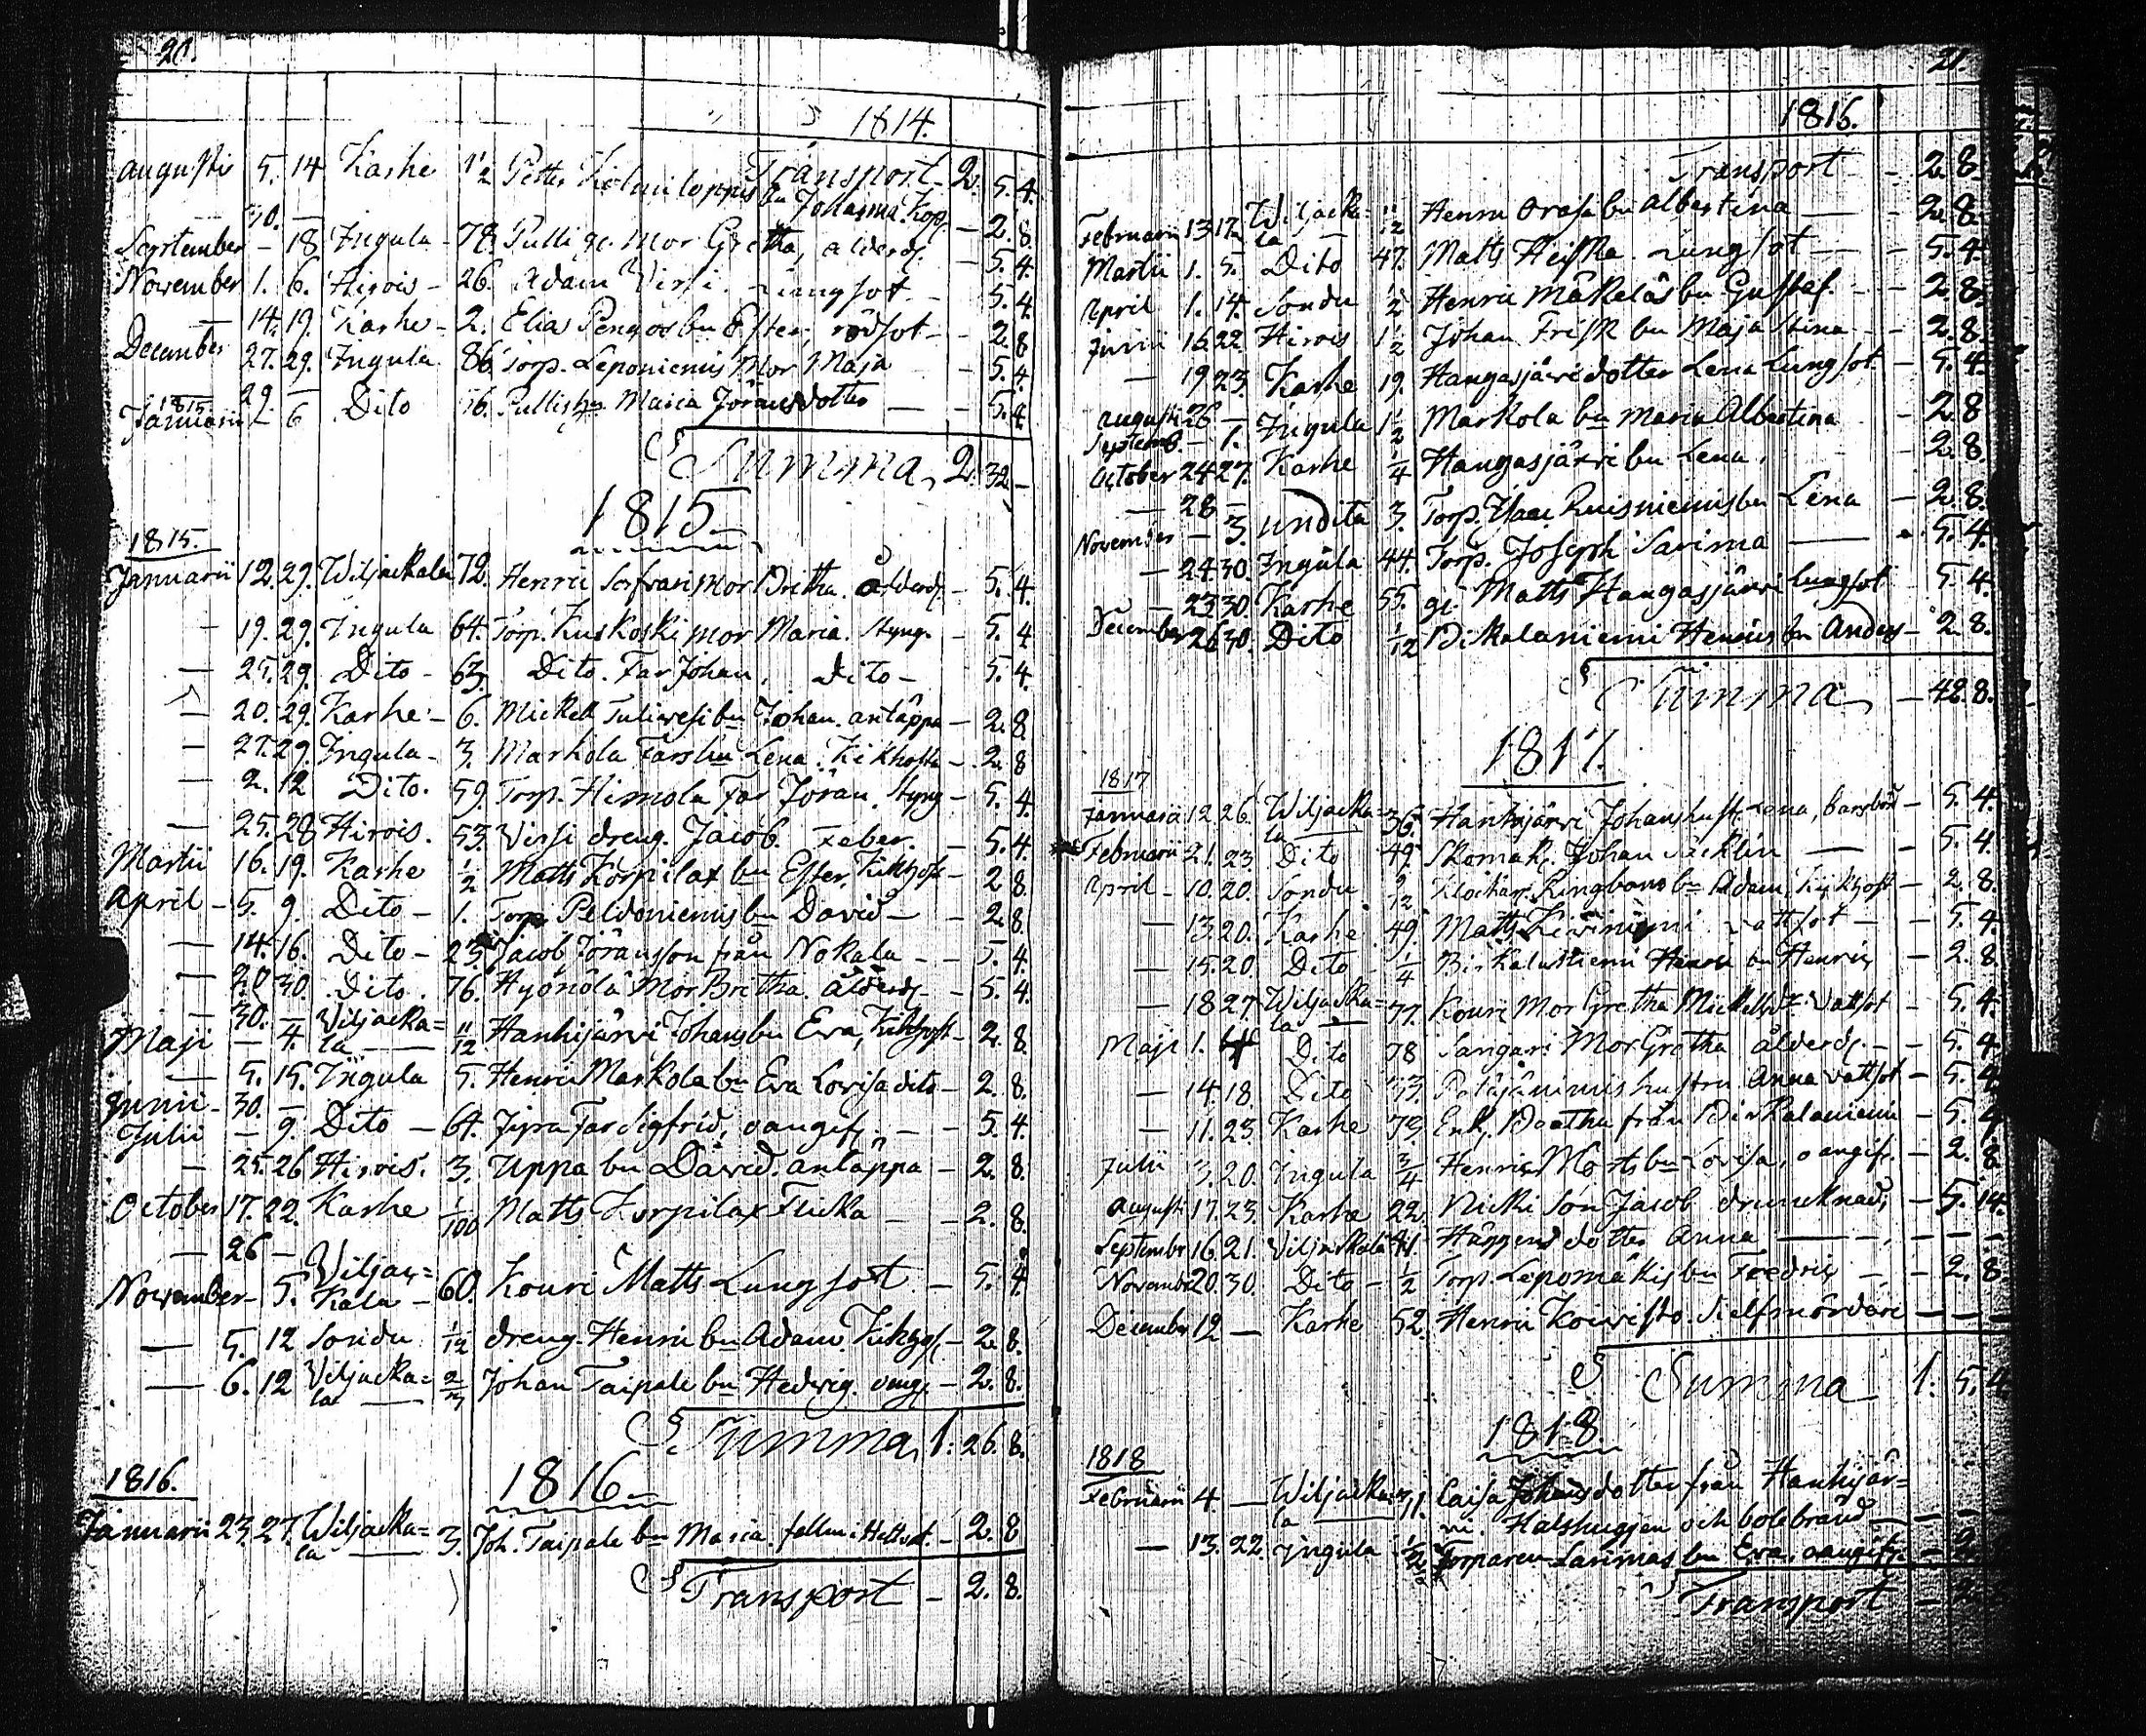 20.
1814.
Transport 2. 5. 4.
augusti 5. 14 Karhe 1/2 Petter bu Johanna. Kop. - 2. 8.
30. -
September - 18 Ingula - 78. Pulli gl. Mor Gretha, ålderd. - 5. 4.
November 1. 6. Hirois - 26. Adam Virsi. Lungsot - 5. 4.
- 14. 19. Karhe - 2. Elias bu Ester, rödsot - 2. 8
December 27. 29. Ingula 86. Torp. Leponiemis Mor Maja - 5. 4.
29. -
1815
Januarii - 6 Dito 56. Maria Jöransdotter - - 5. 4
Summa, 2. 32. -
1815.
1815.
Januarii 12. 29. Wiljackala 72. Henric Mor Britha. ålderd. - 5. 4.
- 19. 29. Ingula 64. Torp. Kuskoski mor Maria. Styng. - 5. 4
- 25. 29. Dito - 63. Dito. Far Johan. Dito - 5. 4.
- 20. 29. Karhe - 6. Mickell Tulivesi bu Johan. antäppa - 2. 8
- 27. 29. Ingula - 3. Markola Lena. Kikhosta - 2. 8
- 2. 12 Dito. 59. Torp. Himola Far Jöran. Styng - 5. 4.
- 25. 28 Hirois. 53. Virsi dreng. Jacob. Feber. - 5. 4.
Martii 16. 19. Karhe 1/2 Matts Korpilax bu Ester, Kikhost - 2 8.
April - 5. 9. Dito - 1. Torp Peldoniemis bu David - - 2. 8.
- 14. 16. Dito - 25. Jacob Jöransson från Nokala - - 5. 4.
- 20 30. Dito. 76. Hyönölä Mor Britha. ålderd. - 5. 4.
- 30. - Viljacka=
Maji - 4. la - 11/12 Hanhijärvi Johans bu Eva, Kikhost - 2. 8.
- 5. 15. Ingula 5. Henric Markola bu Eva Lovisa dito - 2. 8.
Junii - 30. -
Julii - 9. Dito - 64. Jyra Far Sigfrid, oangif. - - 5. 4.
- 25. 26 Hirois. 3. Uppa bu David. antäppa - 2. 8.
October 17. 22. Karhe 1/100 Matts Korpilax Flicka - - 2. 8.
- 26 - Viljac=
November - 5. kala - 60. Kouri Matts Lungsot - 5. 4
- 5. 12 Sondu 1/12 dreng Henric bu Adam Kikhos. - 2. 8.
- 6. 12 Viljacka= 2/3 Johan Taipale bu Hedvig. oang. - 2. 8.
la -
Summa, 1. 26. 8.
1816.
1816.
Januarii 23. 27. Wiljacka= 3. Joh. Taipale bu Maria. fallen i - 2. 8
la -
Transport - 2. 8.
21.
1816.
Transport - 2. 8.
Februarii 13. 17. Wiljacka= 11/12 Henric Orasa bu Albertina - - 2. 8.
la -
Martii 1. 5. Dito 47. Matts Heiska. Lungsot - - 5. 4.
April 1. 14. Sondu 1/2 Henric Mäkeläs bu Gustaf. - - 2. 8.
Junii 16. 22. Hirois 1 1/2 Johan Frisk bu Maja Stina - - 2. 8.
- 19 23. Karhe 19. Hangasjärvi dotter Lena Lungsot. - 5. 4.
augusti 26 - Ingula 1 1/2 Markola bu Maria Albertina - 2. 8
Septemb. - 1.
October 24 27. Karhe 1/4 Hangasjärvi bu Lena. - 2. 8.
- 28 -
November - 3. undita 3. Torp. Isaac Ruisniemis bu Lena - 2. 8.
- 24. 30. Ingula 44. Torp. Joseph Sarima - 5. 4.
- 23 30 Karhe 55. gl. Matts Hangasjärvi lungsot 5. 4.
December 26 30. Dito 1/12 Birkalaniemi Henrics bu Anders - 2. 8.
Summa - 42. 8.
1817.
1817
Januarii 12. 26. Wiljacka= 36. Hanhijärvi Johans hust. Lena, barsbörd - 5. 4.
la -
Februarii 21. 23. Dito 49. Skomak. Johan Säcklin - 5. 4
April - 10. 20. Sondu Klockar. Ringboms bu Adam, Kikhost - 2. 8.
- 13. 20. Karhe 49. Matts Kivinimi. vattsot - 5. 4.
- 15. 20 Dito 1/4 Birkalaniemi Henric bu Henric - 2. 8
- 18 27. Wiljacka= 77. Kouri Mor Gretha Mickelsd. Vattsot - 5. 4.
la -
Maji 1. 4 Dito 78 Sangari Mor Gretha ålderd. - - 5. 4
- 14. 18. Dito hustru Anna vattsot - 5. 4
- 11. 23. Karhe 73. Enk. från Birkalaniemi - 5. 4
Julii 3. 20. Ingula 3/4 Henric bu Lovisa, oangif. - 2. 8
augusti 17. 23. Karhe 22 Nicki Son Jacob druncknad, - 5. 14.
Septembr 16. 21. Viljackala 41. dotter Anna - - - -
November 20. 30. Dito - 1/2 Torp. Lepomäkis bu Fredric - - 2. 8.
December 12 - Karhe 52. Henric Koivisto. Sielfmördare - - -
Summa 1. 5. 4
1818.
1818
Februarii 4 - Wiljacka= Caisa Johansdotter från Hanhijär=
la - vi. Halshuggen och bolebränd - - -
- 13. 22. Ingula 1/2 Torparen Sarimas bu Eva. oangif. - 2.
Transport - 2.